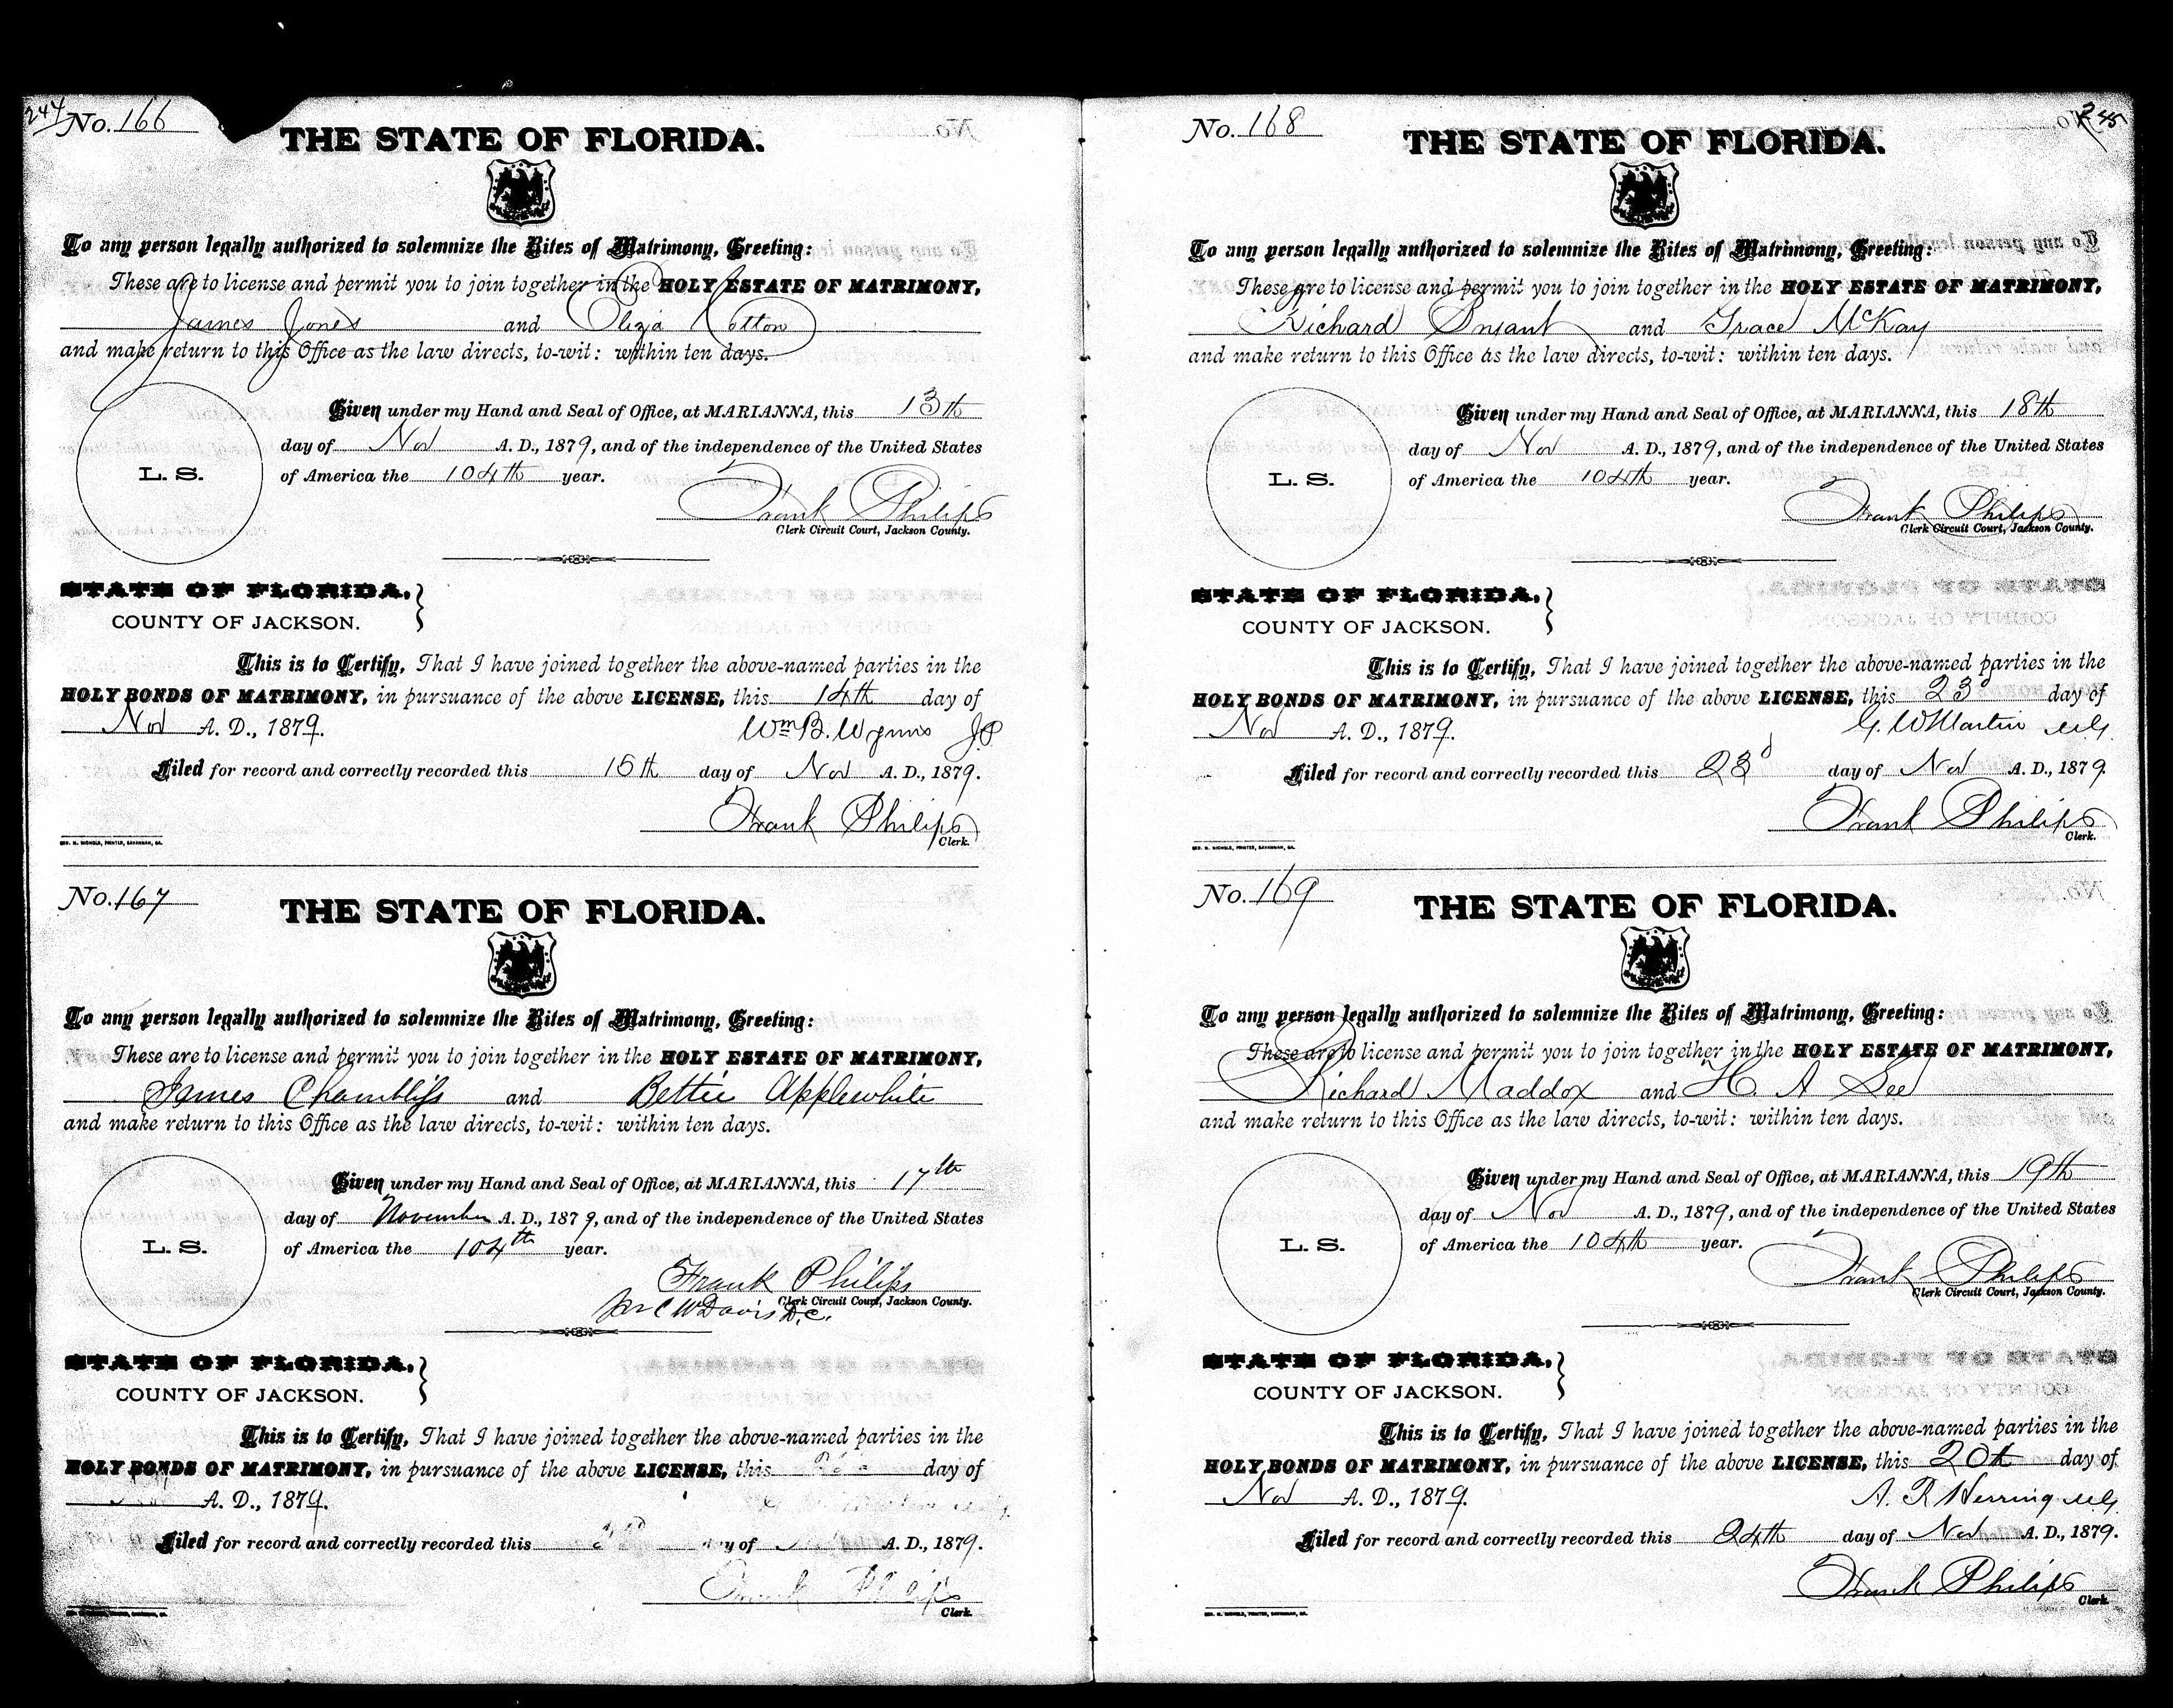 244
No. 166
THE STATE OF FLORIDA.
To any person legally authorized to solemnize the Rites of Matrimony, Greeting:
These are to license and permit you to join together in the HOLY ESTATE OF MATRIMONY,
James Jones and Eliza Cotton
and make return to this Office as the law directs, to-wit: within ten days.
Given under my Hand and Seal of Office, at MARIANNA, this 13th
day of Nov A. D., 1879, and of the independence of the United States
L. S. of America the 104th year.
Frank Philips
Clerk Circuit Court, Jackson County.
STATE OF FLORIDA,
COUNTY OF JACKSON.
This is to Certify, That I have joined together the above-named parties in the
HOLY BONDS OF MATRIMONY, in pursuance of the above LICENSE, this 14th day of
Nov A. D., 1879.
Wm B. Wynns J.P.
Filed for record and correctly recorded this 15th day of Nov A. D., 1879.
Frank Philips
Clerk.
GEO. N. NICHOLS, PRINTER, SAVANNAH, GA.
No. 167
THE STATE OF FLORIDA.
To any person legally authorized to solemnize the Rites of Matrimony, Greeting:
These are to license and permit you to join together in the HOLY ESTATE OF MATRIMONY,
James Chambliss and Bettie Applewhite
and make return to this Office as the law directs, to-wit: within ten days.
Given under my Hand and Seal of Office, at MARIANNA, this 17th
day of November A. D., 1879, and of the independence of the United States
L. S. of America the 104th year.
Frank Philips
Clerk Circuit Court, Jackson County.
Per C W Davis D.C.
STATE OF FLORIDA,
COUNTY OF JACKSON.
This is to Certify, That I have joined together the above-named parties in the
HOLY BONDS OF MATRIMONY, in pursuance of the above LICENSE, this day of
A. D., 1879.
Filed for record and correctly recorded this day of A. D., 1879.
Frank Philips
Clerk.
245
No. 168
THE STATE OF FLORIDA.
To any person legally authorized to solemnize the Rites of Matrimony, Greeting:
These are to license and permit you to join together in the HOLY ESTATE OF MATRIMONY,
Richard Bryant and Grace McKay
and make return to this Office as the law directs, to-wit: within ten days.
Given under my Hand and Seal of Office, at MARIANNA, this 18th
day of Nov A. D., 1879, and of the independence of the United States
L. S. of America the 104th year.
Frank Philips
Clerk Circuit Court, Jackson County.
STATE OF FLORIDA,
COUNTY OF JACKSON.
This is to Certify, That I have joined together the above-named parties in the
HOLY BONDS OF MATRIMONY, in pursuance of the above LICENSE, this 23d day of
Nov A. D., 1879.
G. W Martin M.G.
Filed for record and correctly recorded this 23d day of Nov A. D., 1879.
Frank Philips
Clerk.
GEO. N. NICHOLS, PRINTER, SAVANNAH, GA.
No. 169
THE STATE OF FLORIDA.
To any person legally authorized to solemnize the Rites of Matrimony, Greeting:
These are to license and permit you to join together in the HOLY ESTATE OF MATRIMONY,
Richard Maddox and H. A See
and make return to this Office as the law directs, to-wit: within ten days.
Given under my Hand and Seal of Office, at MARIANNA, this 19th
day of Nov A. D., 1879, and of the independence of the United States
L. S. of America the 104th year.
Frank Philips
Clerk Circuit Court, Jackson County.
STATE OF FLORIDA,
COUNTY OF JACKSON.
This is to Certify, That I have joined together the above-named parties in the
HOLY BONDS OF MATRIMONY, in pursuance of the above LICENSE, this 20th day of
Nov A. D., 1879.
A. R Herring M.G.
Filed for record and correctly recorded this 24th day of Nov A. D., 1879.
Frank Philips
Clerk.